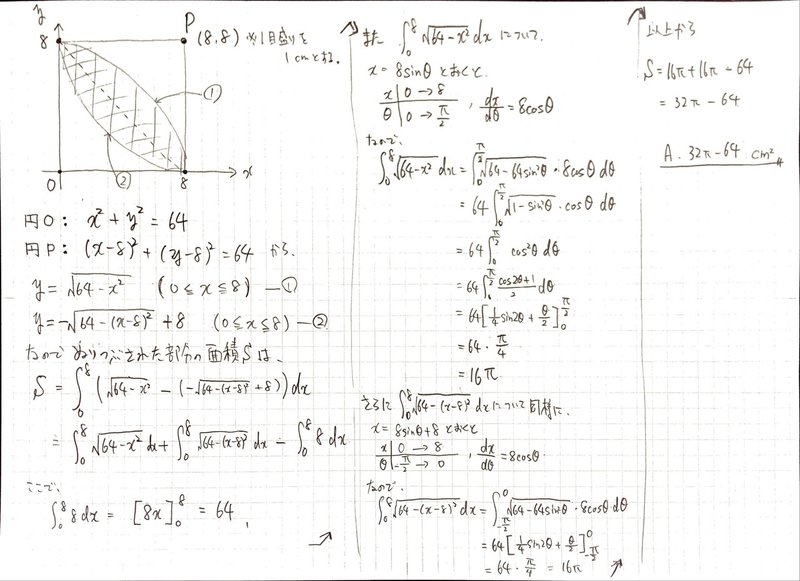 y
P
8
(8,8) ※1目盛りを
1cmとする.
①
②
O
8
x
円O: x²+y²=64
円P: (x-8)²+(y-8)²=64 から.
y=√64-x² (0≦x≦8) —①
y=-√64-(x-8)² +8 (0≦x≦8) —②
なので ぬりつぶされた部分の面積Sは、
S = ∫₀⁸ (√64-x² - (-√64-(x-8)² +8)) dx
= ∫₀⁸ √64-x² dx + ∫₀⁸ √64-(x-8)² dx - ∫₀⁸ 8 dx
ここで、
∫₀⁸ 8 dx = [8x]₀⁸ = 64 ,
また ∫₀⁸ √64-x² dx について.
x=8sinθ とおくと.
x | 0 → 8
θ | 0 → π/2 , dx/dθ = 8cosθ
なので、
∫₀⁸ √64-x² dx = ∫₀^(π/2) √64-64sin²θ · 8cosθ dθ
= 64 ∫₀^(π/2) √1-sin²θ · cosθ dθ
= 64 ∫₀^(π/2) cos²θ dθ
= 64 ∫₀^(π/2) (cos2θ+1)/2 dθ
= 64 [1/4 sin2θ + θ/2]₀^(π/2)
= 64 · π/4
= 16π
さらに ∫₀⁸ √64-(x-8)² dx について 同様に.
x = 8sinθ+8 とおくと
x | 0 → 8
θ | -π/2 → 0 , dx/dθ = 8cosθ.
なので.
∫₀⁸ √64-(x-8)² dx = ∫_(-π/2)^0 √64-64sin²θ · 8cosθ dθ
= 64 [1/4 sin2θ + θ/2]_(-π/2)^0
= 64 · π/4 = 16π
以上から
S = 16π+16π-64
= 32π-64
A. 32π-64 cm²